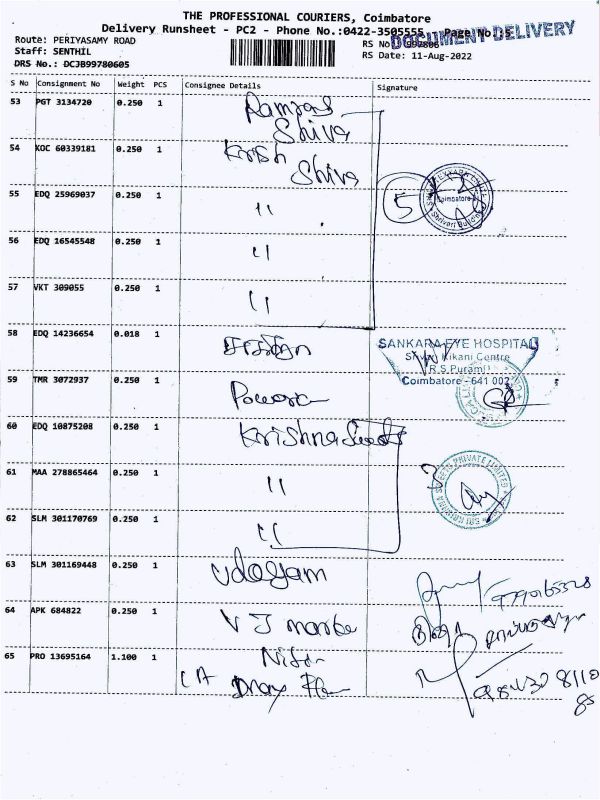 THE PROFESSIONAL COURIERS, Coimbatore
Delivery Runsheet - PC2 - Phone No.:0422-3505555 Page No.:5
DOCUMENT DELIVERY
Route: PERIYASAMY ROAD
RS No
Staff: SENTHIL
RS Date: 11-Aug-2022
DRS No.: DCJB99780605
S No Consignment No Weight PCS Consignee Details Signature
53 PGT 3134720 0.250 1
Shiva
54 KOC 60339181 0.250 1 Krish
Shiva
5
Coimbatore
55 EDQ 25969037 0.250 1 "
56 EDQ 16545548 0.250 1 "
57 VKT 309055 0.250 1 "
58 EDQ 14236654 0.018 1
SANKARA EYE HOSPITAL
Kikani Centre
R.S.Puram
Coimbatore - 641 002
59 TMR 3072937 0.250 1
60 EDQ 10875208 0.250 1 Krishna Sweets
61 MAA 278865464 0.250 1 "
SRI KRISHNA SWEETS PRIVATE LIMITED
62 SLM 301170769 0.250 1 "
63 SLM 301169448 0.250 1 Udayam
64 APK 684822 0.250 1 V J
65 PRO 13695164 1.100 1